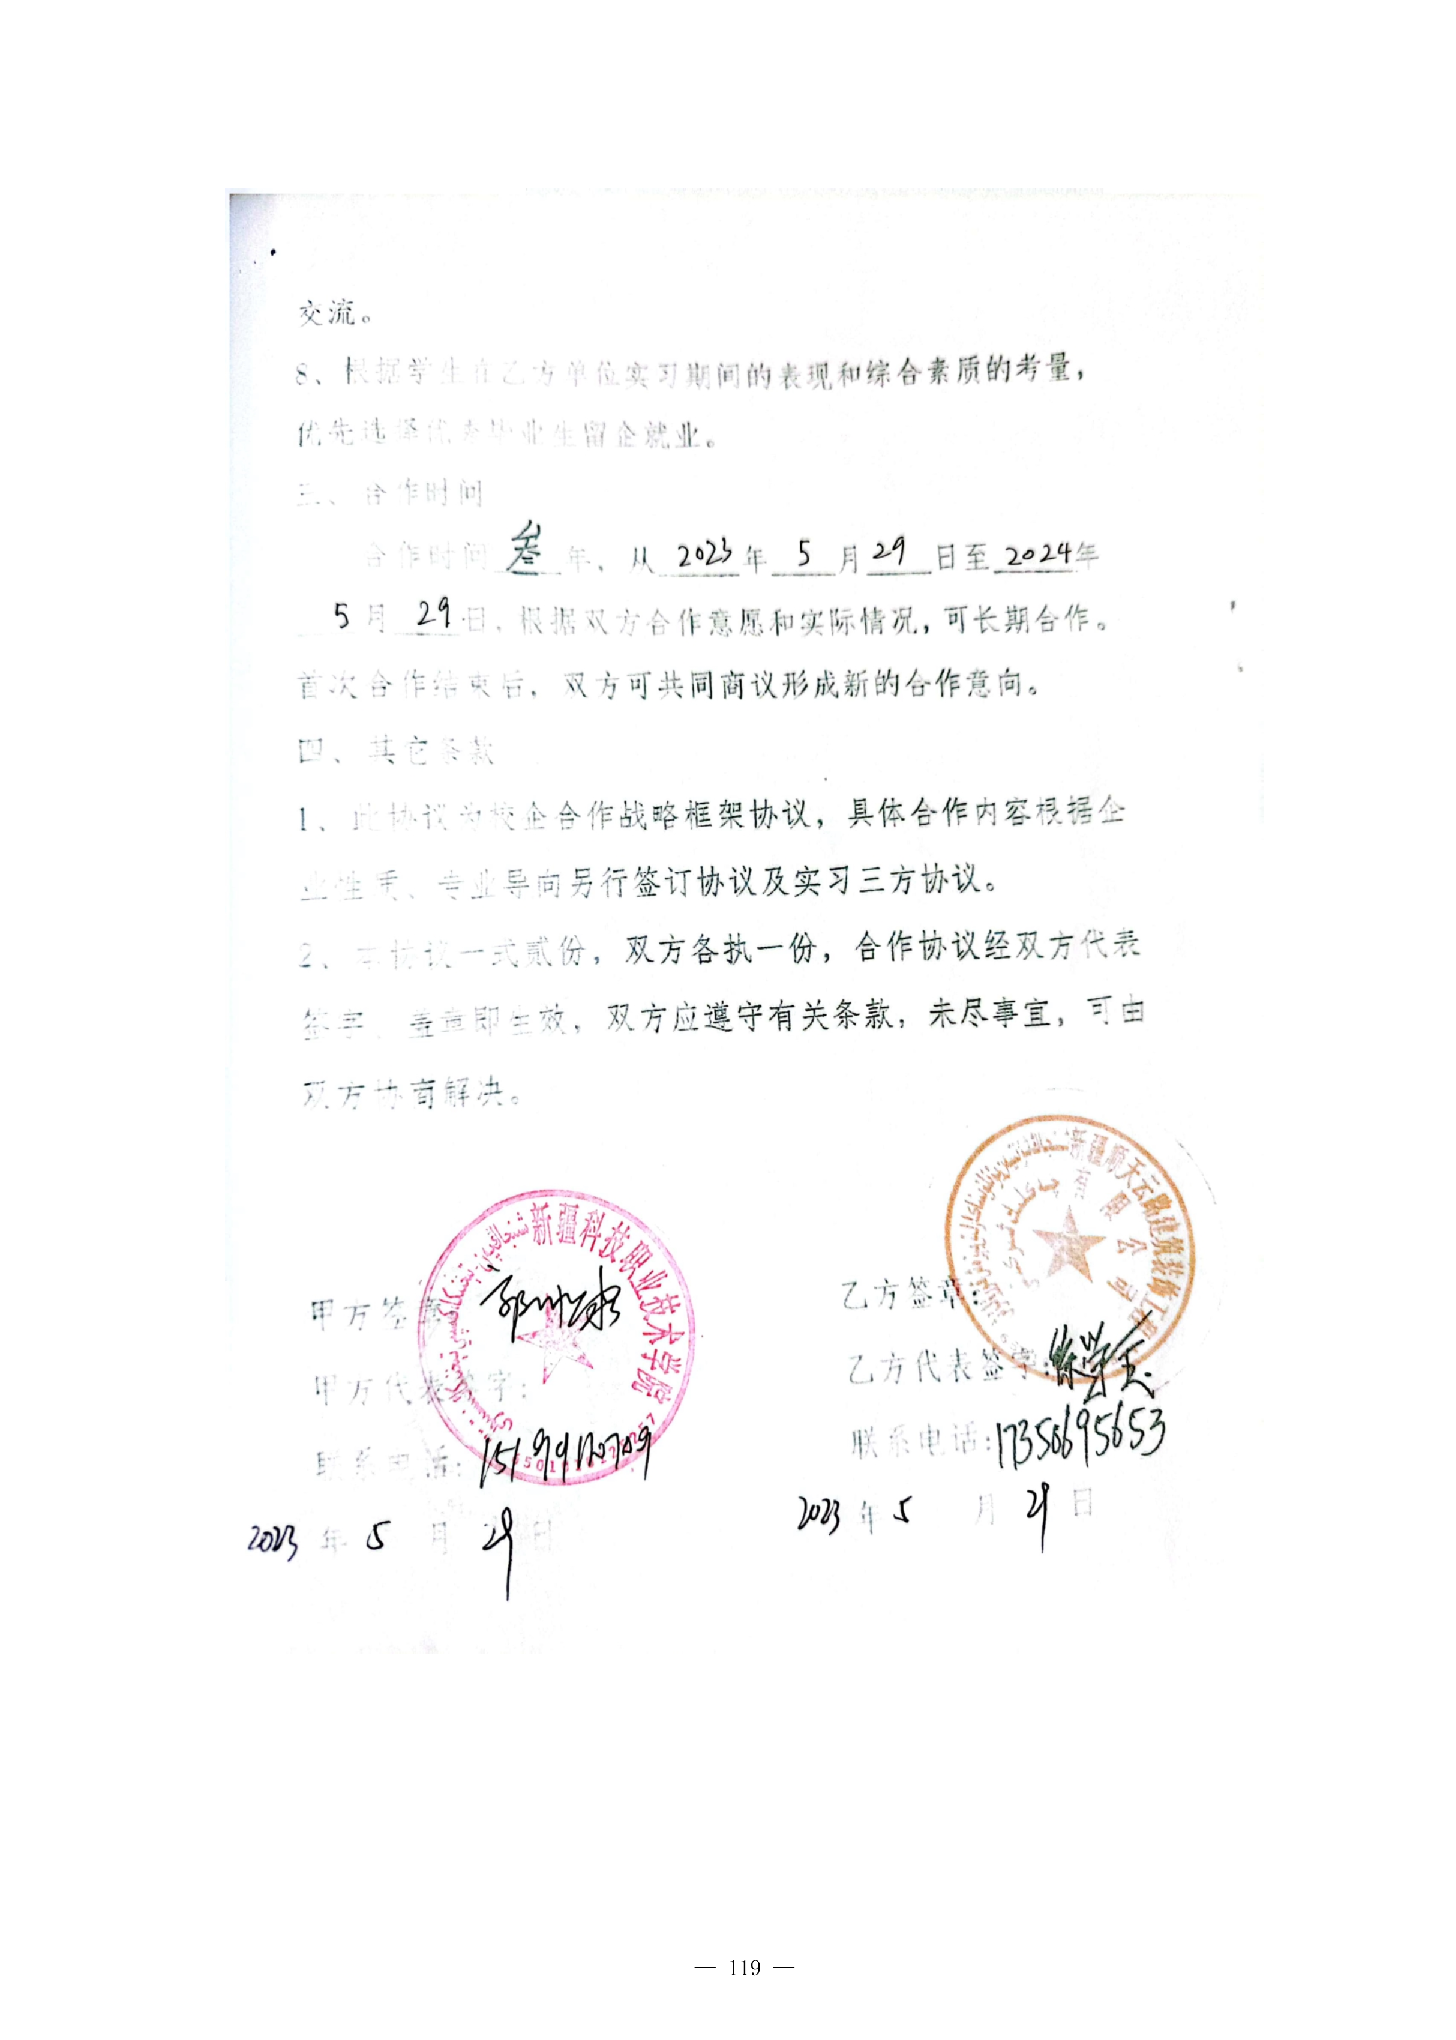 交流。
8、根据学生在乙方单位实习期间的表现和综合素质的考量，
优先选择优秀毕业生留企就业。
三、合作时间
合作时间 叁 年、从 2023 年 5 月 29 日至 2024 年
5 月 29 日，根据双方合作意愿和实际情况，可长期合作。
首次合作结束后，双方可共同商议形成新的合作意向。
四、其它条款
1、此协议为校企合作战略框架协议，具体合作内容根据企
业性质、专业导向另行签订协议及实习三方协议。
2、本协议一式贰份，双方各执一份，合作协议经双方代表
签字、盖章即生效，双方应遵守有关条款，未尽事宜，可由
双方协商解决。
新疆科技职业技术学院
甲方签章:
甲方代表签字:
联系电话:
2023 年 5 月 29 日
有限公司
乙方签章:
乙方代表签字:
联系电话: 17350695653
2023 年 5 月 29 日
— 119 —